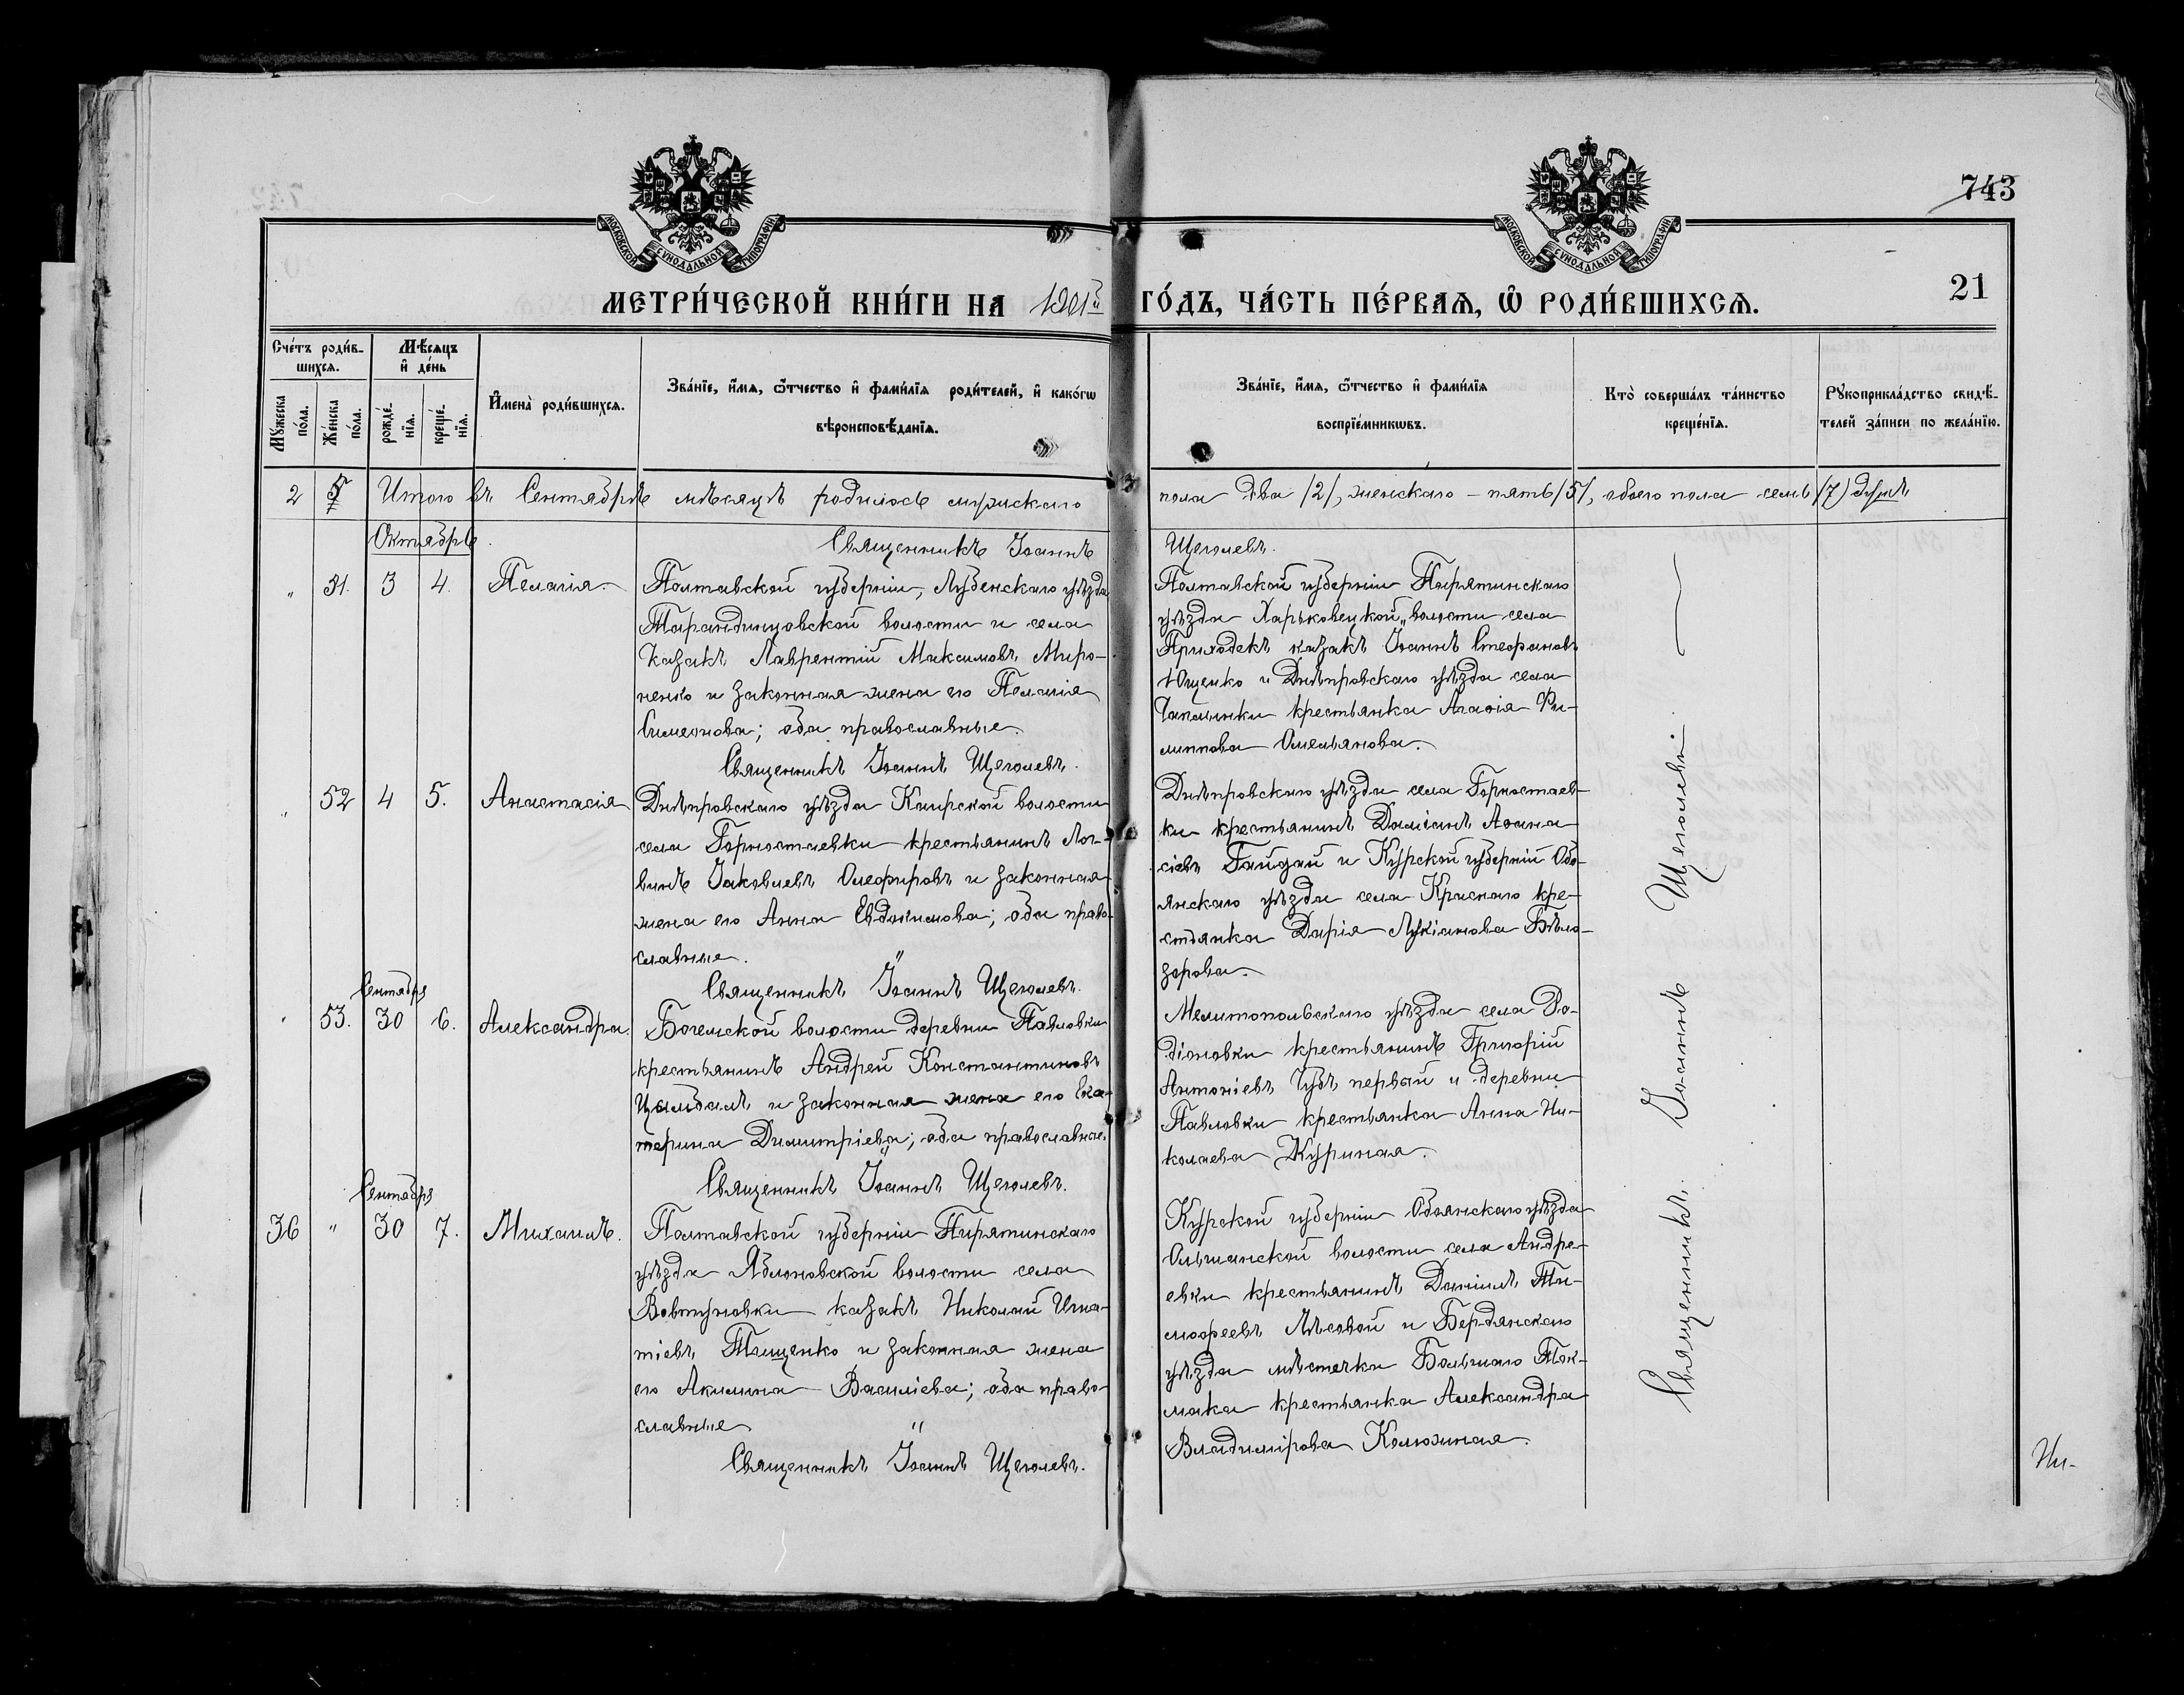 743
21
МОСКОВСКОЙ СѴНОДАЛЬНОЙ ТИПОГРАФІИ
МОСКОВСКОЙ СѴНОДАЛЬНОЙ ТИПОГРАФІИ
МЕТРИ́ЧЕСКОЙ КНИ́ГИ НА 1901й ГО́ДЪ, ЧА́СТЬ ПЕ́РВАЯ, Ѡ҆ РОДИ́ВШИХСЯ.
Сче́тъ роди́в-
шихся.
Мꙋ́жеска
по́ла.
Же́нска
по́ла.
Мѣ́сяцъ
и҆ де́нь
рожде́-
нїя.
креще́-
нїя.
И҆мена̀ роди́вшихся.
Зва́нїе, и҆́мя, ѻ҆́тчество и҆ фами́лїя роди́телей, и҆ како́гѡ
вѣроисповѣ́данїя.
Зва́нїе, и҆́мя, ѻ҆́тчество и҆ фами́лїя
воспрїе́мникѡвъ.
Кто̀ соверша́лъ та́инство
креще́нїя.
Рꙋкоприкла́дство свидѣ́-
телей за́писи по жела́нїю.
2 5 Итого въ Сентябрѣ мѣсяцѣ родилось мужскаго пола два /2/, женскаго - пять /5/, обоего пола семь /7/ душъ
Октябрь.
Священникъ Іоаннъ Щеголевъ.
" 51. 3 4. Пелагія.
Полтавской губерніи, Лубенскаго уѣзда
Тарандинцовской волости и села
казакъ Лаврентій Максимовъ Миро-
ненко и законная жена его Пелагія
Симеонова; оба православные.
Священникъ Іоаннъ Щеголевъ.
Полтавской губерніи Пирятинскаго
уѣзда Харьковецкой волости села
Приходекъ казакъ Іоаннъ Стефановъ
Ющенко и Днѣпровскаго уѣзда села
Чаплынки крестьянка Агафія Фи-
липпова Омельянова.
" 52 4 5. Анастасія
Днѣпровскаго уѣзда Каирской волости
села Горностаевки крестьянинъ Лог-
винъ Іаковлевъ Олефировъ и законная
жена его Анна Евдокимова; оба право-
славные.
Священникъ Іоаннъ Щеголевъ.
Днѣпровскаго уѣзда села Горностаев-
ки крестьянинъ Даміанъ Аѳана-
сіевъ Гайдай и Курской губерніи Обо-
янскаго уѣзда села Краснаго кре-
стьянка Дарія Лукіанова Бѣло-
зорова.
Сентября
" 53. 30 6. Александра.
Богемской волости деревни Павловки
крестьянинъ Андрей Константиновъ
Цымбалъ и законная жена его Ека-
терина Димитріева; оба православные.
Священникъ Іоаннъ Щеголевъ.
Мелитопольскаго уѣзда села Ро-
діоновки крестьянинъ Григорій
Антоніевъ Чубъ первый и деревни
Павловки крестьянка Анна Ни-
колаева Журиная.
Сентября
36 " 30 7. Михаилъ.
Полтавской губерніи Пирятинскаго
уѣзда Яблоновской волости села
Вовтуновки казакъ Николай Игна-
тіевъ Тощенко и законная жена
его Акилина Василіева; оба право-
славные
Священникъ Іоаннъ Щеголевъ.
Курской губерніи Обоянскаго уѣзда
Ольшанской волости села Андре-
евки крестьянинъ Даніилъ Ти-
моѳеевъ Лѣсовой и Бердянскаго
уѣзда мѣстечка Большаго Ток-
мака крестьянка Александра
Владимірова Колюжная.
Священникъ Іоаннъ Щеголевъ.
Ни-